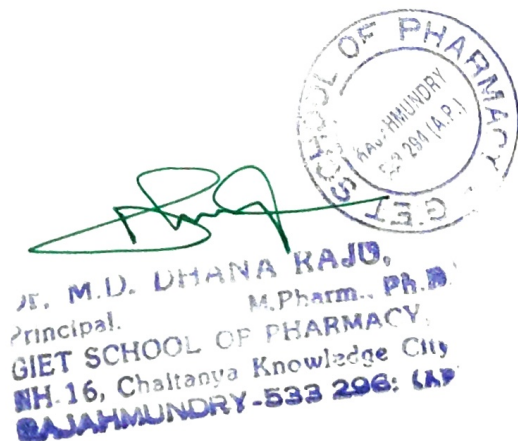 SCHOOL OF PHARMACY
GIET
RAJAHMUNDRY
533 294 (A.P.)
Dr. M.D. DHANA RAJU,
M.Pharm., Ph.D.
Principal.
GIET SCHOOL OF PHARMACY,
NH.16, Chaitanya Knowledge City
RAJAHMUNDRY-533 296: (AP